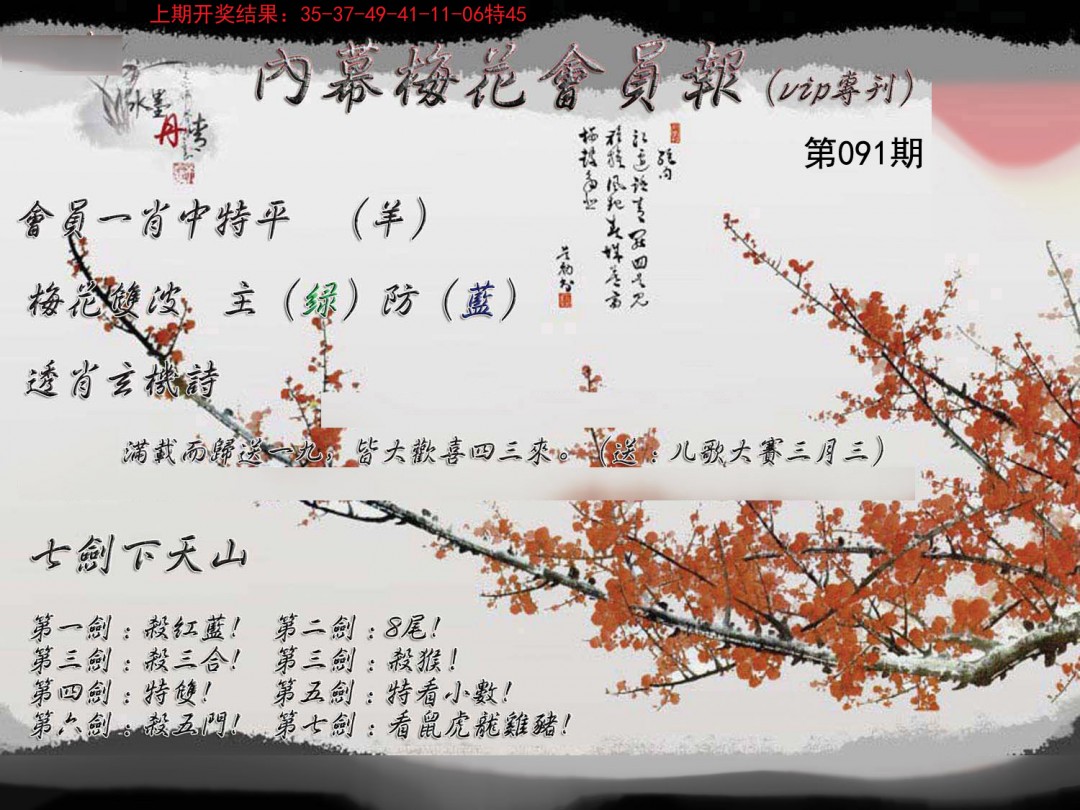 上期开奖结果：35-37-49-41-11-06特45
內幕梅花會員報（vip專刊）
水墨丹青
第091期
會員一肖中特平　（羊）
梅花雙波　主（綠）防（藍）
透肖玄機詩
滿載而歸送一九，皆大歡喜四三來。（送：儿歌大賽三月三）
七劍下天山
第一劍：殺紅藍！　第二劍：8尾！
第三劍：殺三合！　第三劍：殺猴！
第四劍：特雙！　第五劍：特看小數！
第六劍：殺五門！　第七劍：看鼠虎龍雞豬！